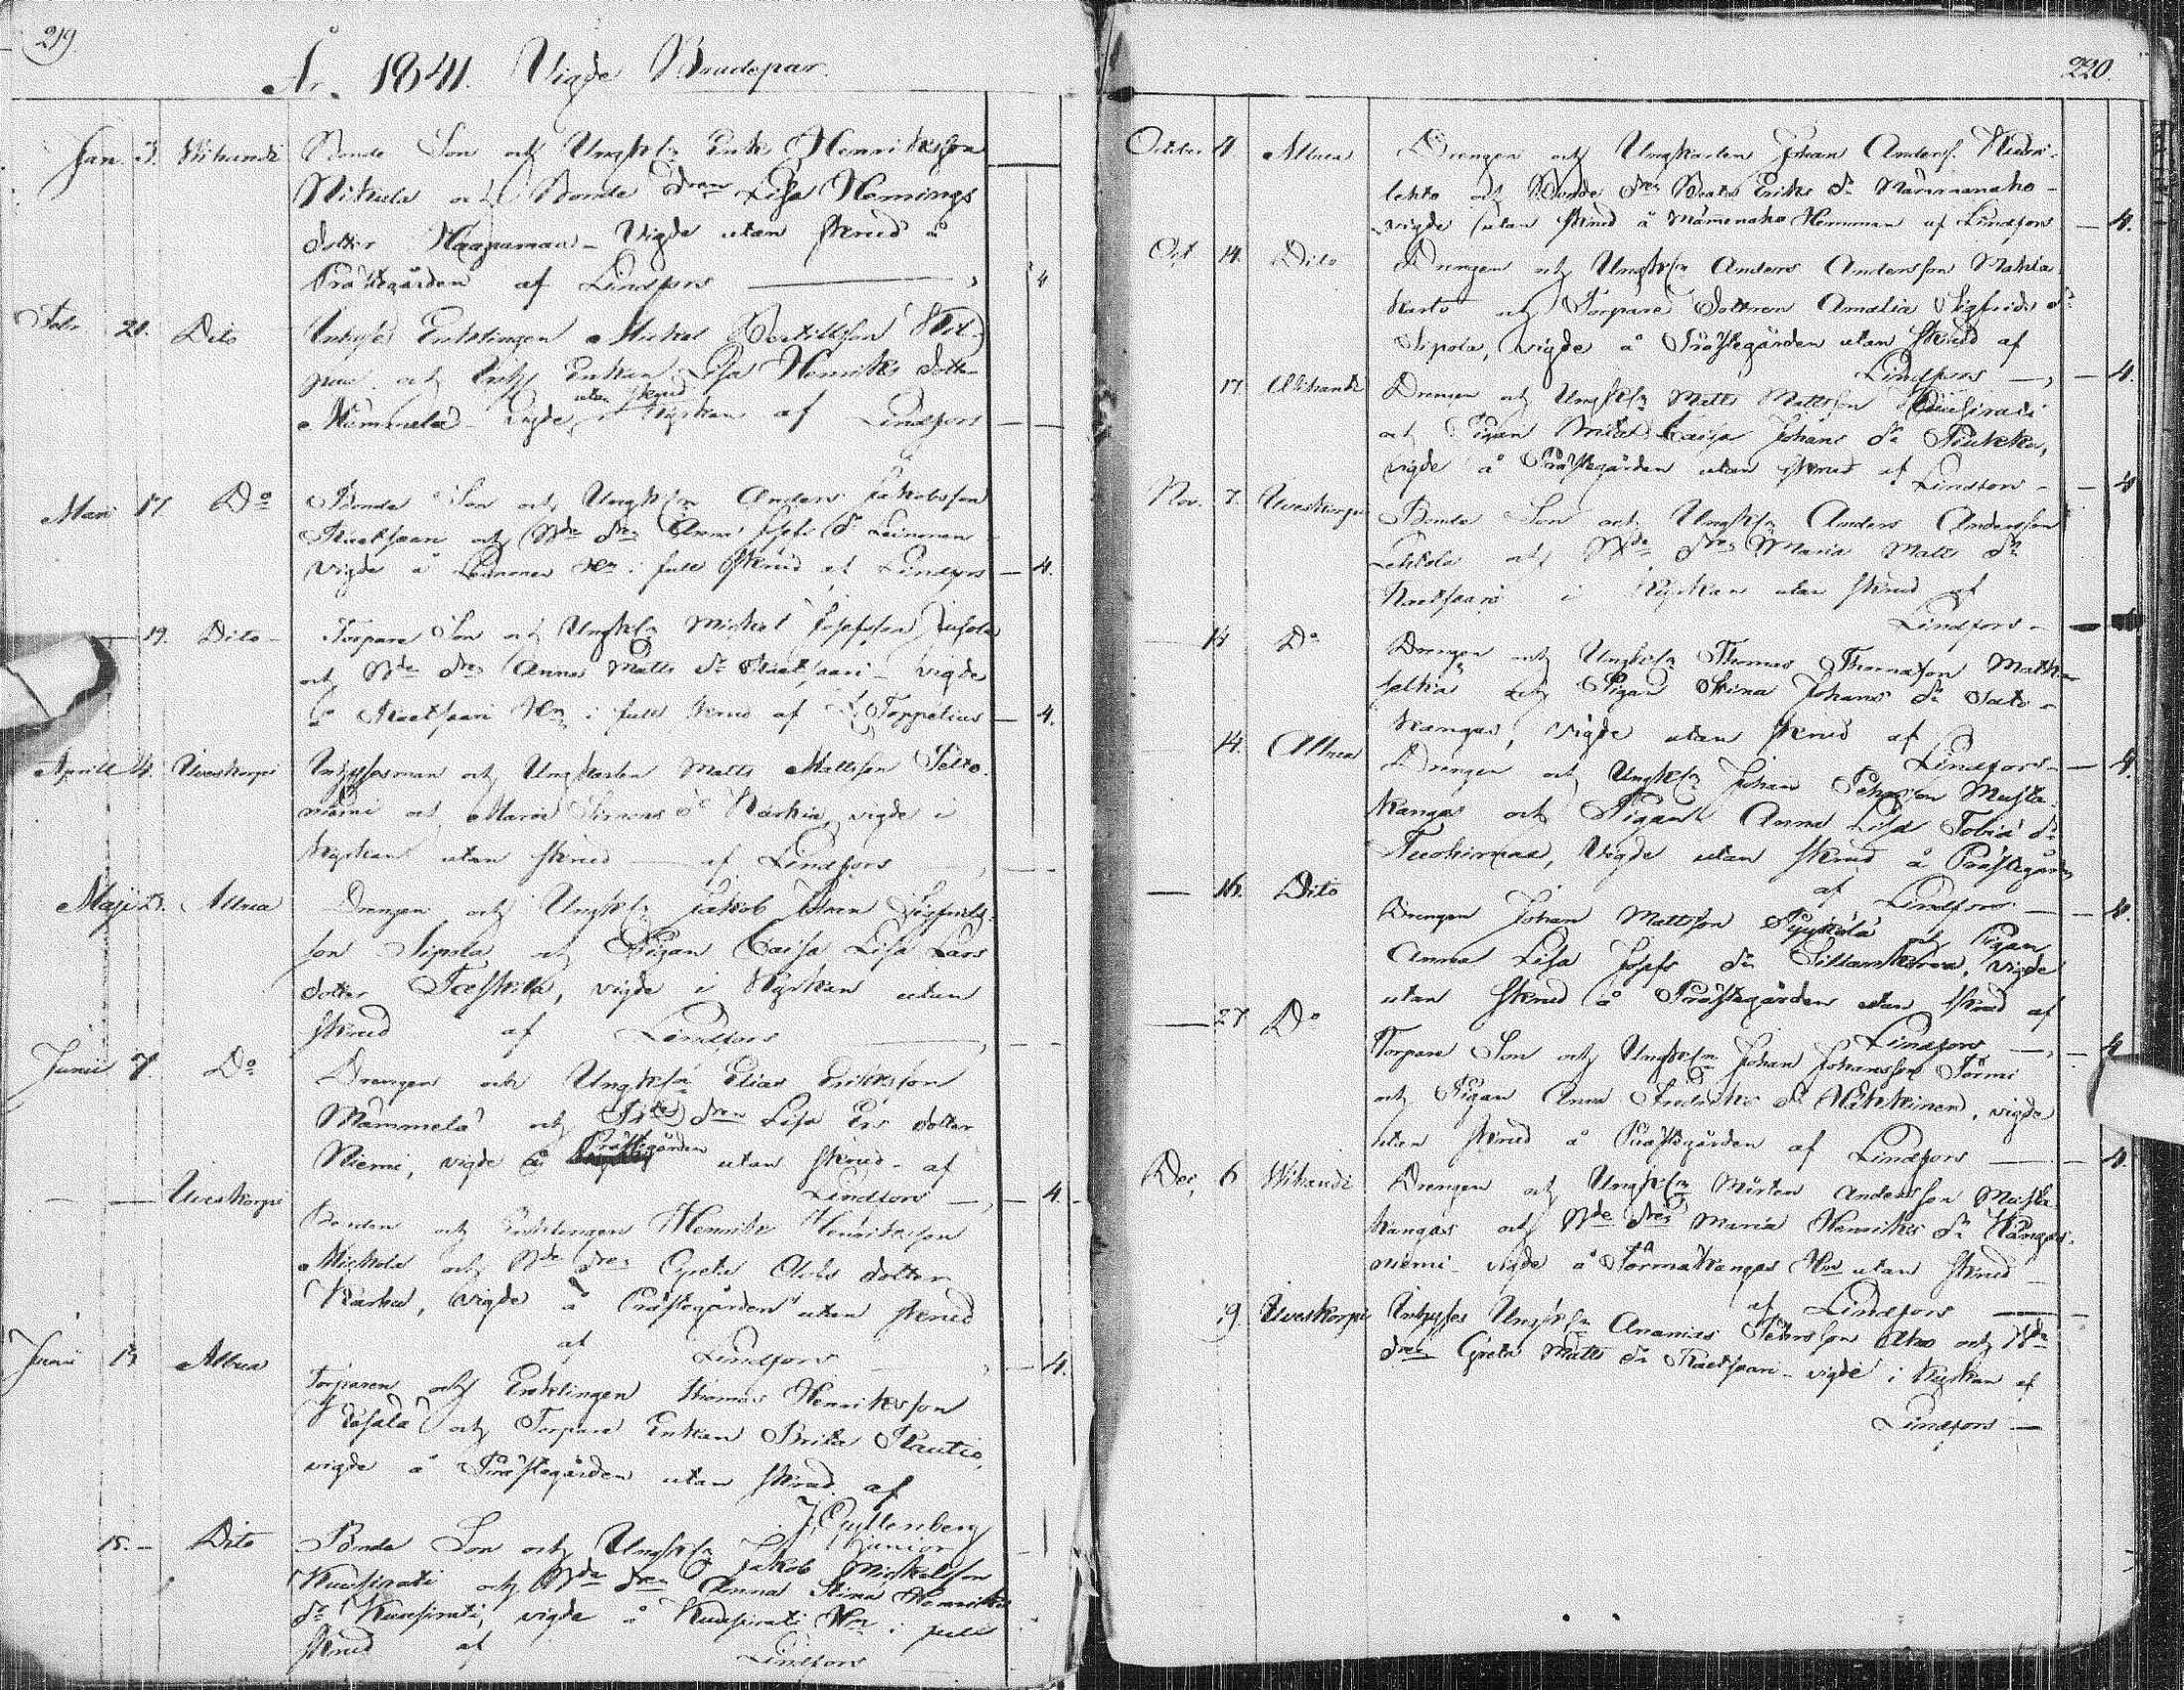 219.
År 1841. Vigde Brudepar.
Jan. 3. Wihandi Bonde Son och Ungkln Erik Henriksson
Nikula och Bonde dren Lisa Hemings
dotter Haapamaa – Vigde utan skrud å
Prästegården af Lindfors — 4
Febr. 20. Dito Inhyses Enklingen Mickel Bertillsson
och Enkan Lisa Henriks dotter
utan skrud
Mämmelä – Vigde i Kyrkan af Lindfors —
Mars 17. Do Bonde Son och Ungkln Anders Jakobsson
Raatikaan och Bde dren Anna Josefs dr Leinonen
vigde å Leinonen Hn i full skrud af Lindfors — 4.
— 19. Dito – Torpare Son och Ungkln Mickel Josefsson Jusola
och Bde dren Anna Matts dr Raatsaari – vigde
å Raatsaari Hn i full skrud af Toppelius — 4.
Aprill 4. Uveskorpi Inhysesman och Ungkarlen Matts Mattsson Pelto-
niemi och Maria Simons dr Kärkiä, vigde i
kyrkan utan skrud — af Lindfors —
Maji 23. Alnea Drengen och Ungkln Jakob Johan Sigfrids-
son Sipola och Pigan Caisa Lisa Lars
dotter Taskila, vigde i Kyrkan utan
skrud af Lindfors —
Junii 7. Do Drengen och Ungkln Elias Eriksson
Mämmelä och dren Lisa Ers dotter
Prästegården
Niemi, vigde å utan skrud – af
Lindfors — 4.
— — Uveskorpi Bonden och Enklingen Henrik Henriksson
Mickola och Bde dren Greta Olofs dotter
Karhu, vigde å Prästegården utan skrud
af Lindfors — 4.
Junii 13 Alnea Torparen och Enklingen Thomas Henriksson
och Torpare Enkan Brita Rautio,
vigde å Prästegården utan skrud af
J. Gyllenberg
junior
15. – Dito Bonde Son och Ungkln Jakob Mickelsson
Kuusirati och Bde dren Anna Stina Henriks
dr Kuusirati, vigde å Kuusirati Hn i full
skrud af Lindfors
220.
October 4. Alnea Drengen och Ungkarlen Johan Anders.
lehto och Bonde dren Beata Eriks dr Mämmenaho –
vigde utan skrud å Mämmenaho Hemman af Lindfors — 4.
Oct 14. Dito Drengen och Ungkln Anders Andersson Matila
och Torpare dottren Amalia Sigfrids dr
Sipola, vigde å Prästegården utan skrud af
Lindfors — 4.
17. Wihandi Drengen och Ungkln Matts Mattsson Kuusirati
och Pigan Brita Caisa Johans dr
vigde å Prästegården utan skrud af Lindfors – 4
Nov. 7. Uveskorpi Bonde Son och Ungkln Anders Andersson
Lehtola och Bde dren Maria Matts dr
Raatsaari i Kyrkan utan skrud af
Lindfors –
— 14 Do Drengen och Ungkln Thomas Thomasson
selkä och Pigan Stina Johans dr
kangas, vigde utan skrud af
Lindfors — 4.
14. Alnea Drengen och Ungkln Johan Pehrsson Musta-
kangas och Pigan Anna Lisa Tobias dr
Tuohimaa, Vigde utan skrud å Prästegården
af Lindfors — 4.
— 16. Dito Drengen Johan Mattsson Pyykölä och Pigan
Anna Lisa Josefs dr Sillankorva, vigde
utan skrud å Prästegården utan skrud af
Lindfors — 4
— 27 Do Torpare Son och Ungkln Johan Johansson Törmi
och Pigan Anna Fredriks dr Häkkinen, vigde
utan skrud å Prästegården af Lindfors — 4.
Dec. 6 Wihandi Drengen och Ungkln Mårten Andersson Musta-
kangas och Bde dren Maria Henriks dr Kangas-
niemi – vigde å Törmäkangas Hn utan skrud –
af Lindfors —
19 Uveskorpi Inhyses Ungkln Ananias Pehrsson Aho och Bde
dren Greta Matts dr Raatsaari – vigde i Kyrkan af
Lindfors —